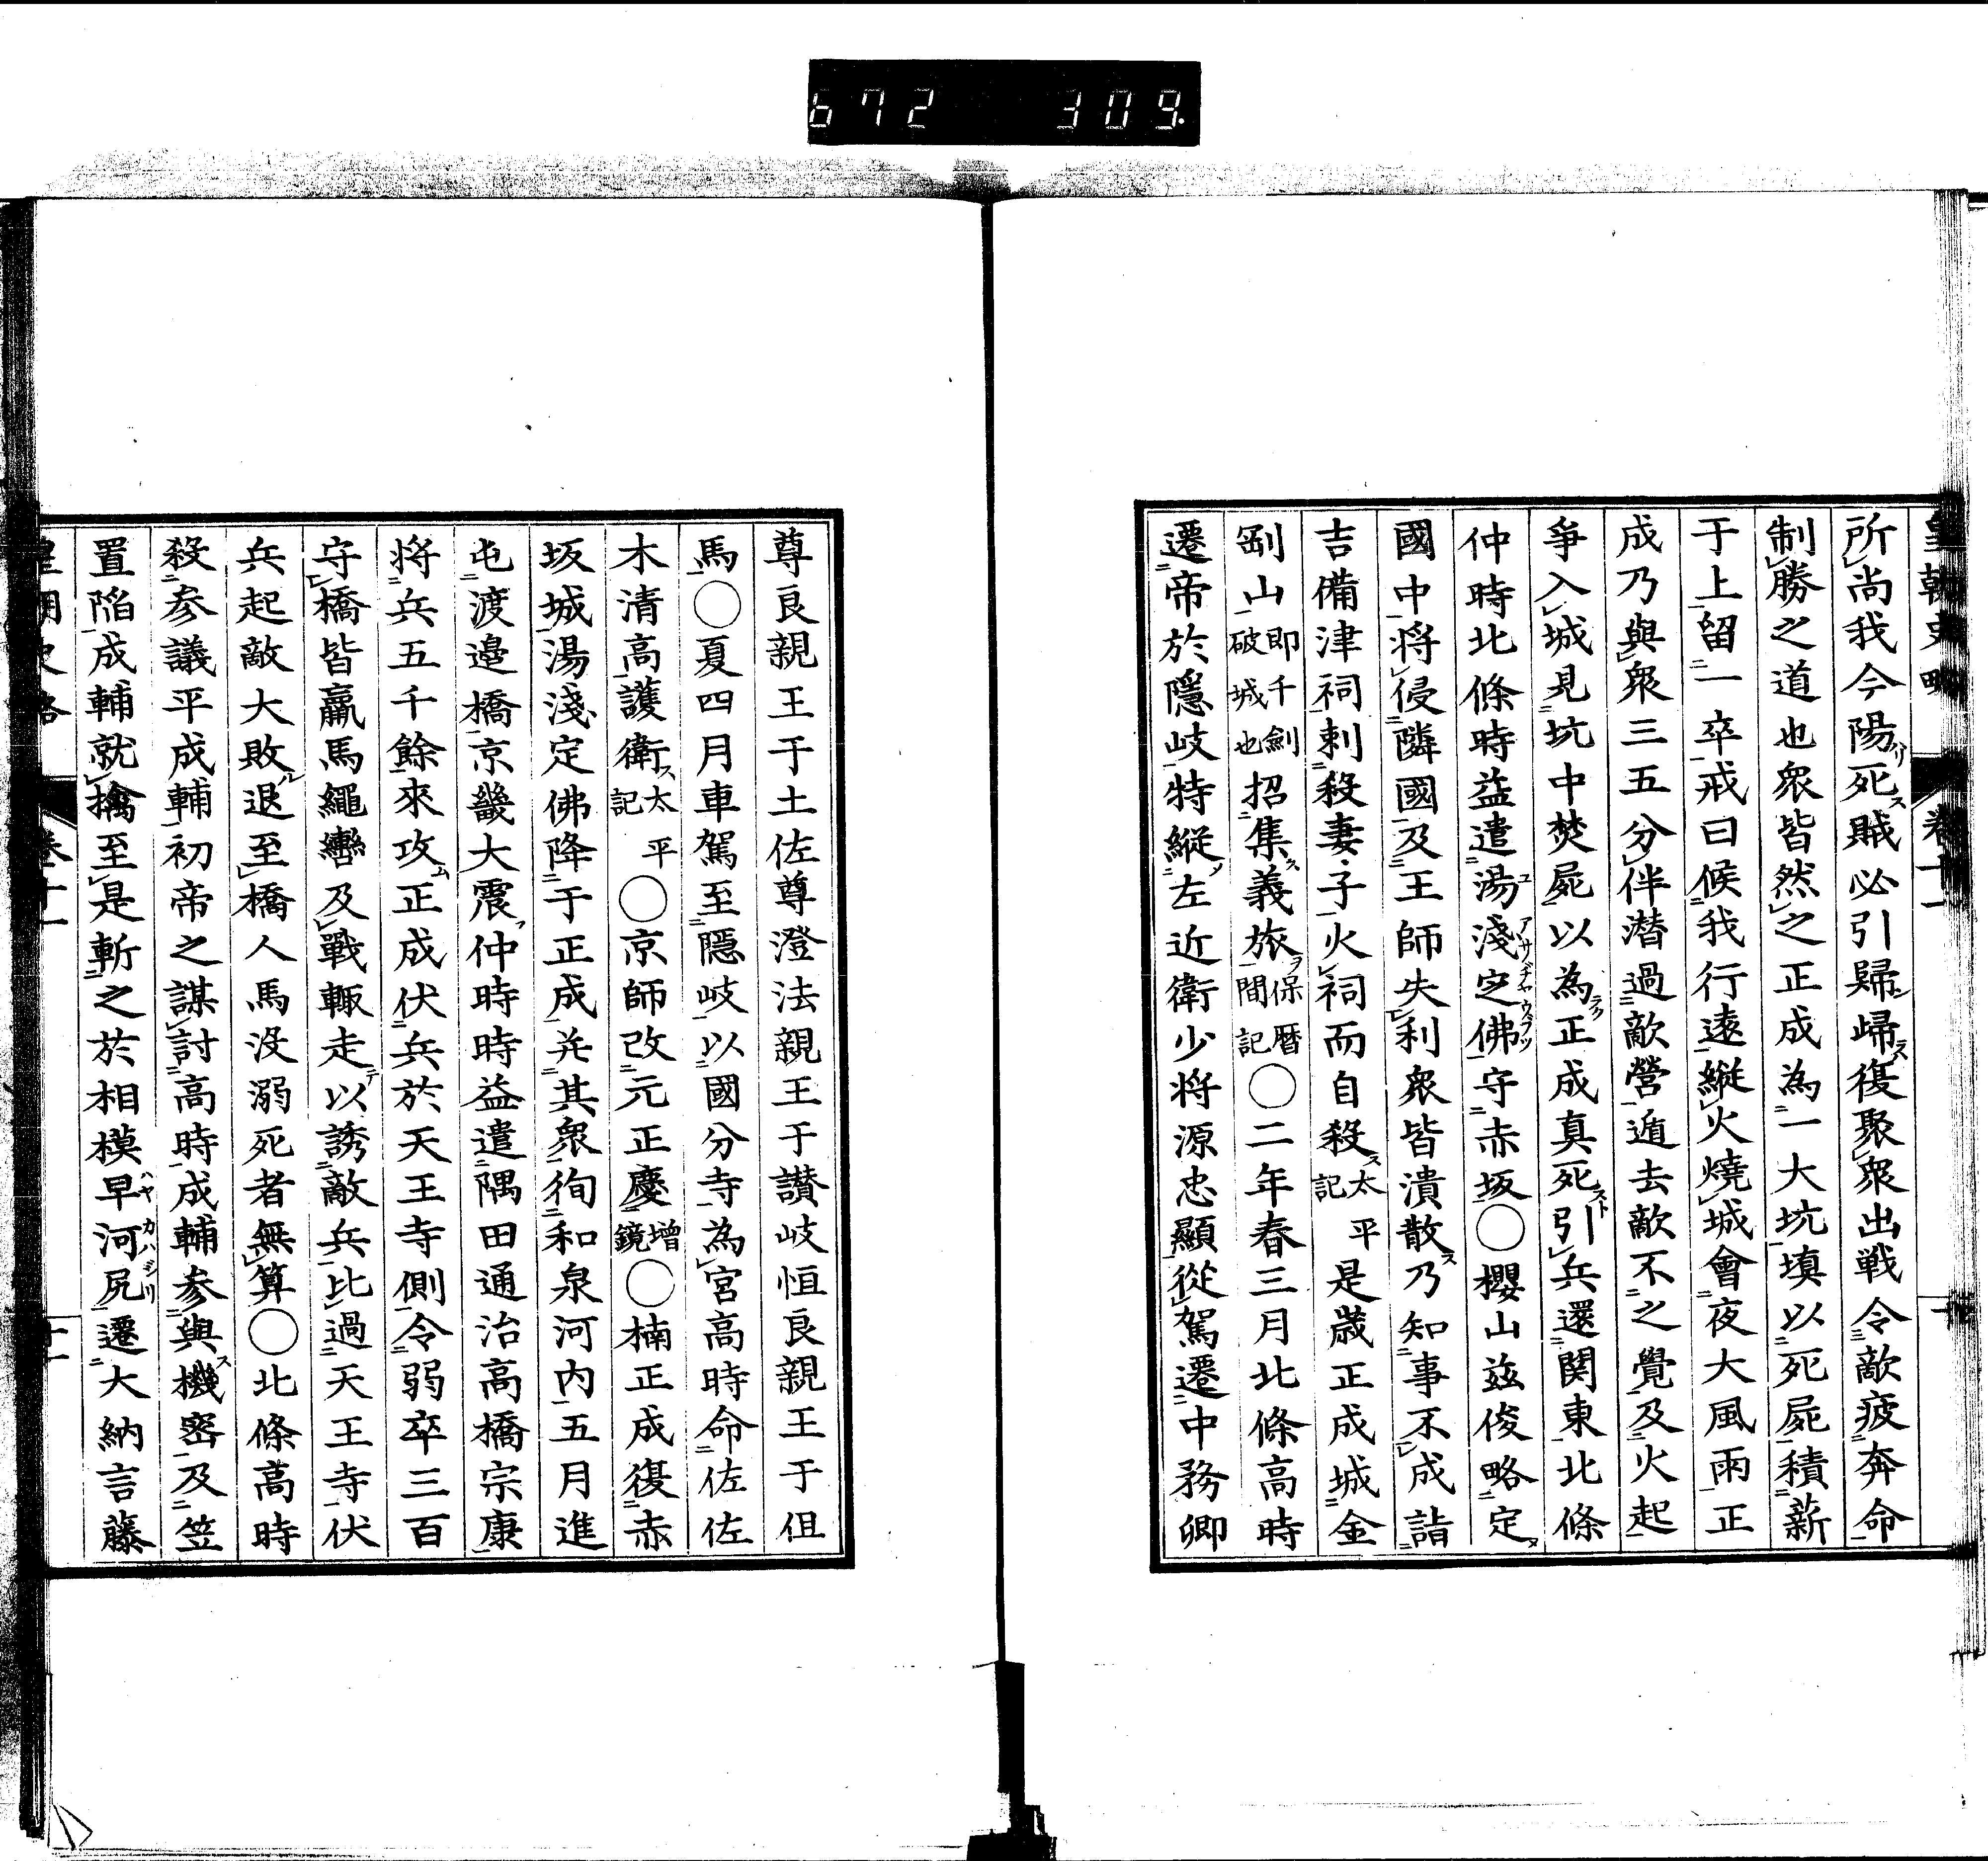 672 309.
皇朝史略 卷十一
所尚我今陽死賊必引歸歸復聚衆出戰令敵疲奔命
制勝之道也衆皆然之正成為一大坑填以死屍積薪
于上留一卒戒曰候我行遠縱火燒城會夜大風雨正
成乃與衆三五分伴潜過敵營遁去敵不之覺及火起
爭入城見坑中焚屍以為正成真死引兵還関東北條
仲時北條時益遣湯淺定佛守赤坂○櫻山茲俊略定
國中将侵隣國及王師失利衆皆潰散乃知事不成詣
吉備津祠刺殺妻子火祠而自殺太平記是歳正成城金
剛山即千劍破城也招集義旅保暦間記○二年春三月北條高時
遷帝於隱岐特縱左近衛少将源忠顯從駕遷中務卿
尊良親王于土佐尊澄法親王于讃岐恒良親王于但
馬○夏四月車駕至隱岐以國分寺為宮高時命佐佐
木清高護衛太平記○京師改元正慶增鏡○楠正成復赤
坂城湯淺定佛降于正成并其衆徇和泉河内五月進
屯渡邉橋京畿大震仲時時益遣隅田通治高橋宗康
将兵五千餘來攻正成伏兵於天王寺側令弱卒三百
守橋皆羸馬繩轡及戰輙走以誘敵兵比過天王寺伏
兵起敵大敗退至橋人馬没溺死者無算○北條高時
殺参議平成輔初帝之謀討高時成輔参與機密及笠
置陷成輔就擒至是斬之於相模早河尻遷大納言藤
皇朝史略 卷十一 十一